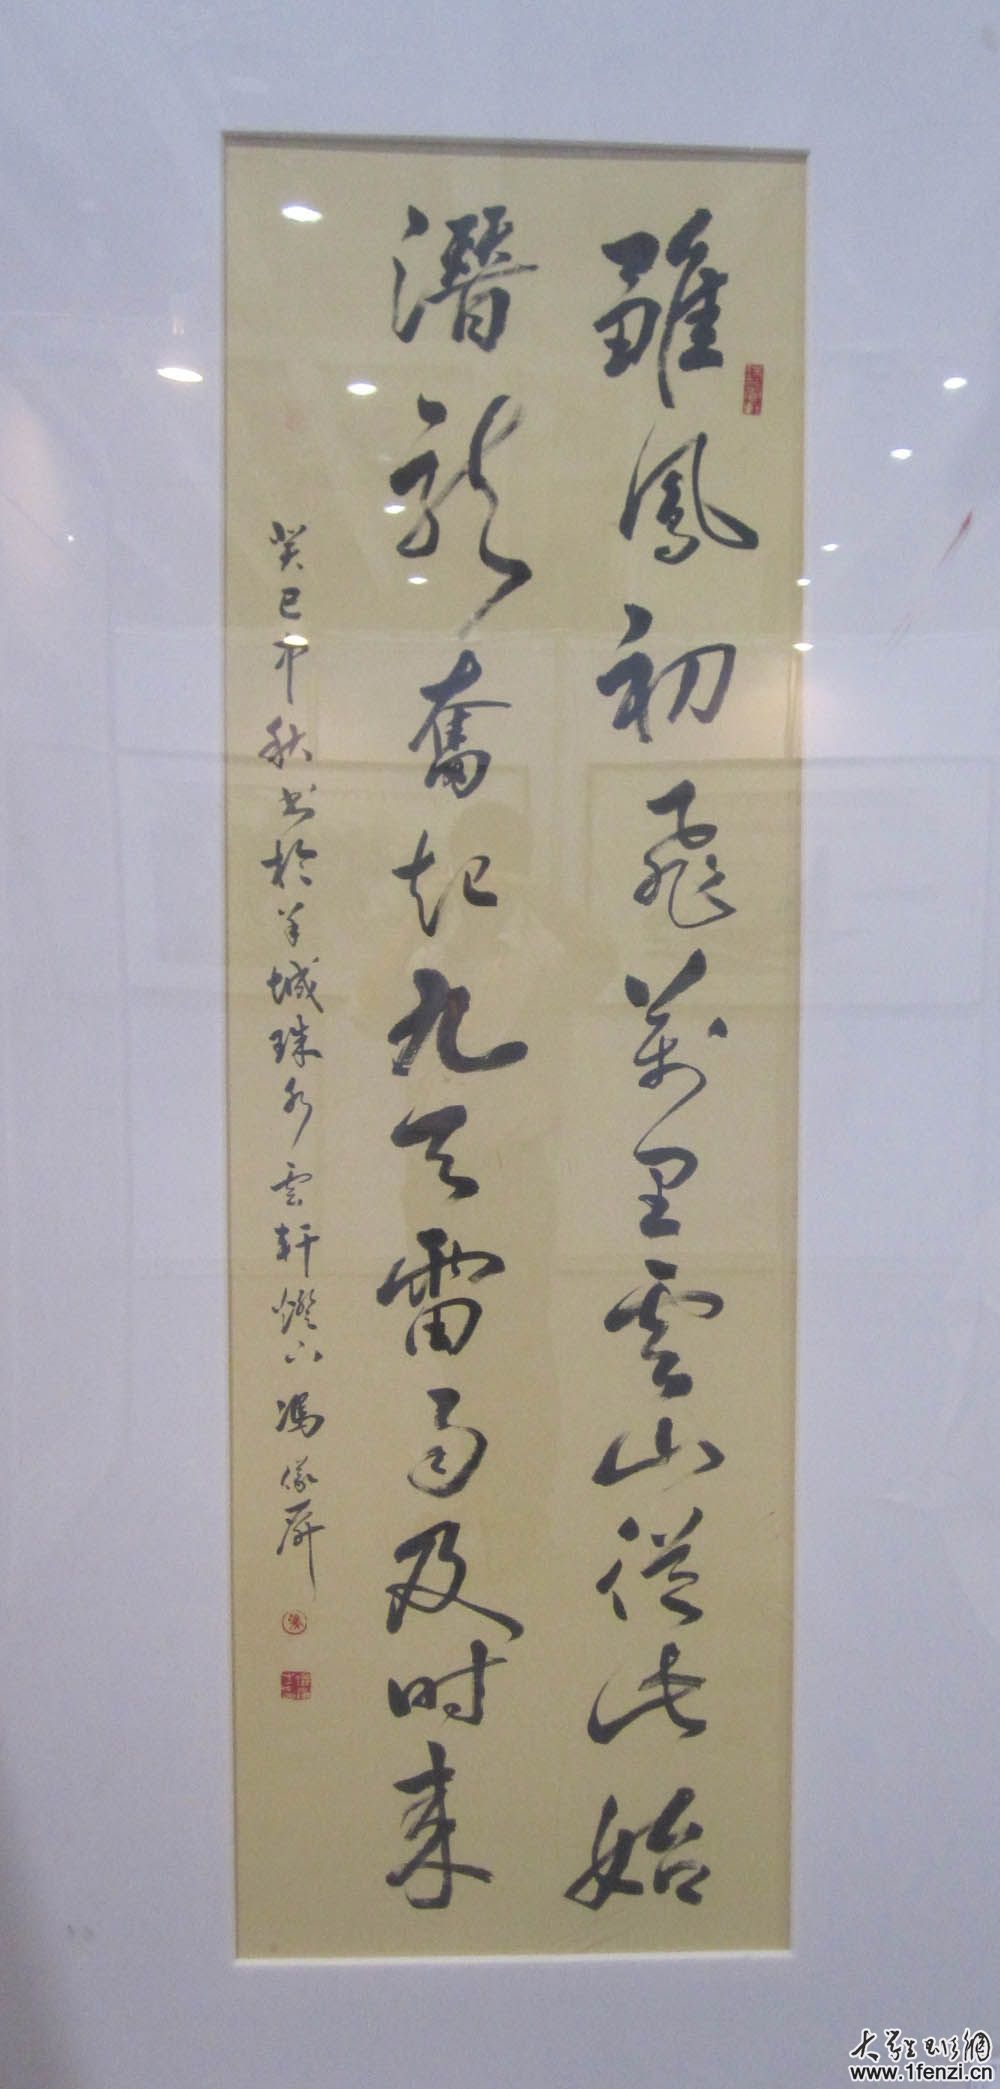 雛鳳初飛萬里雲山從此始
潛龍奮起九天雷雨及时来
癸巳中秋书於羊城珠水雲軒燈下馮儀屏
大学生书法网
www.1fenzi.cn